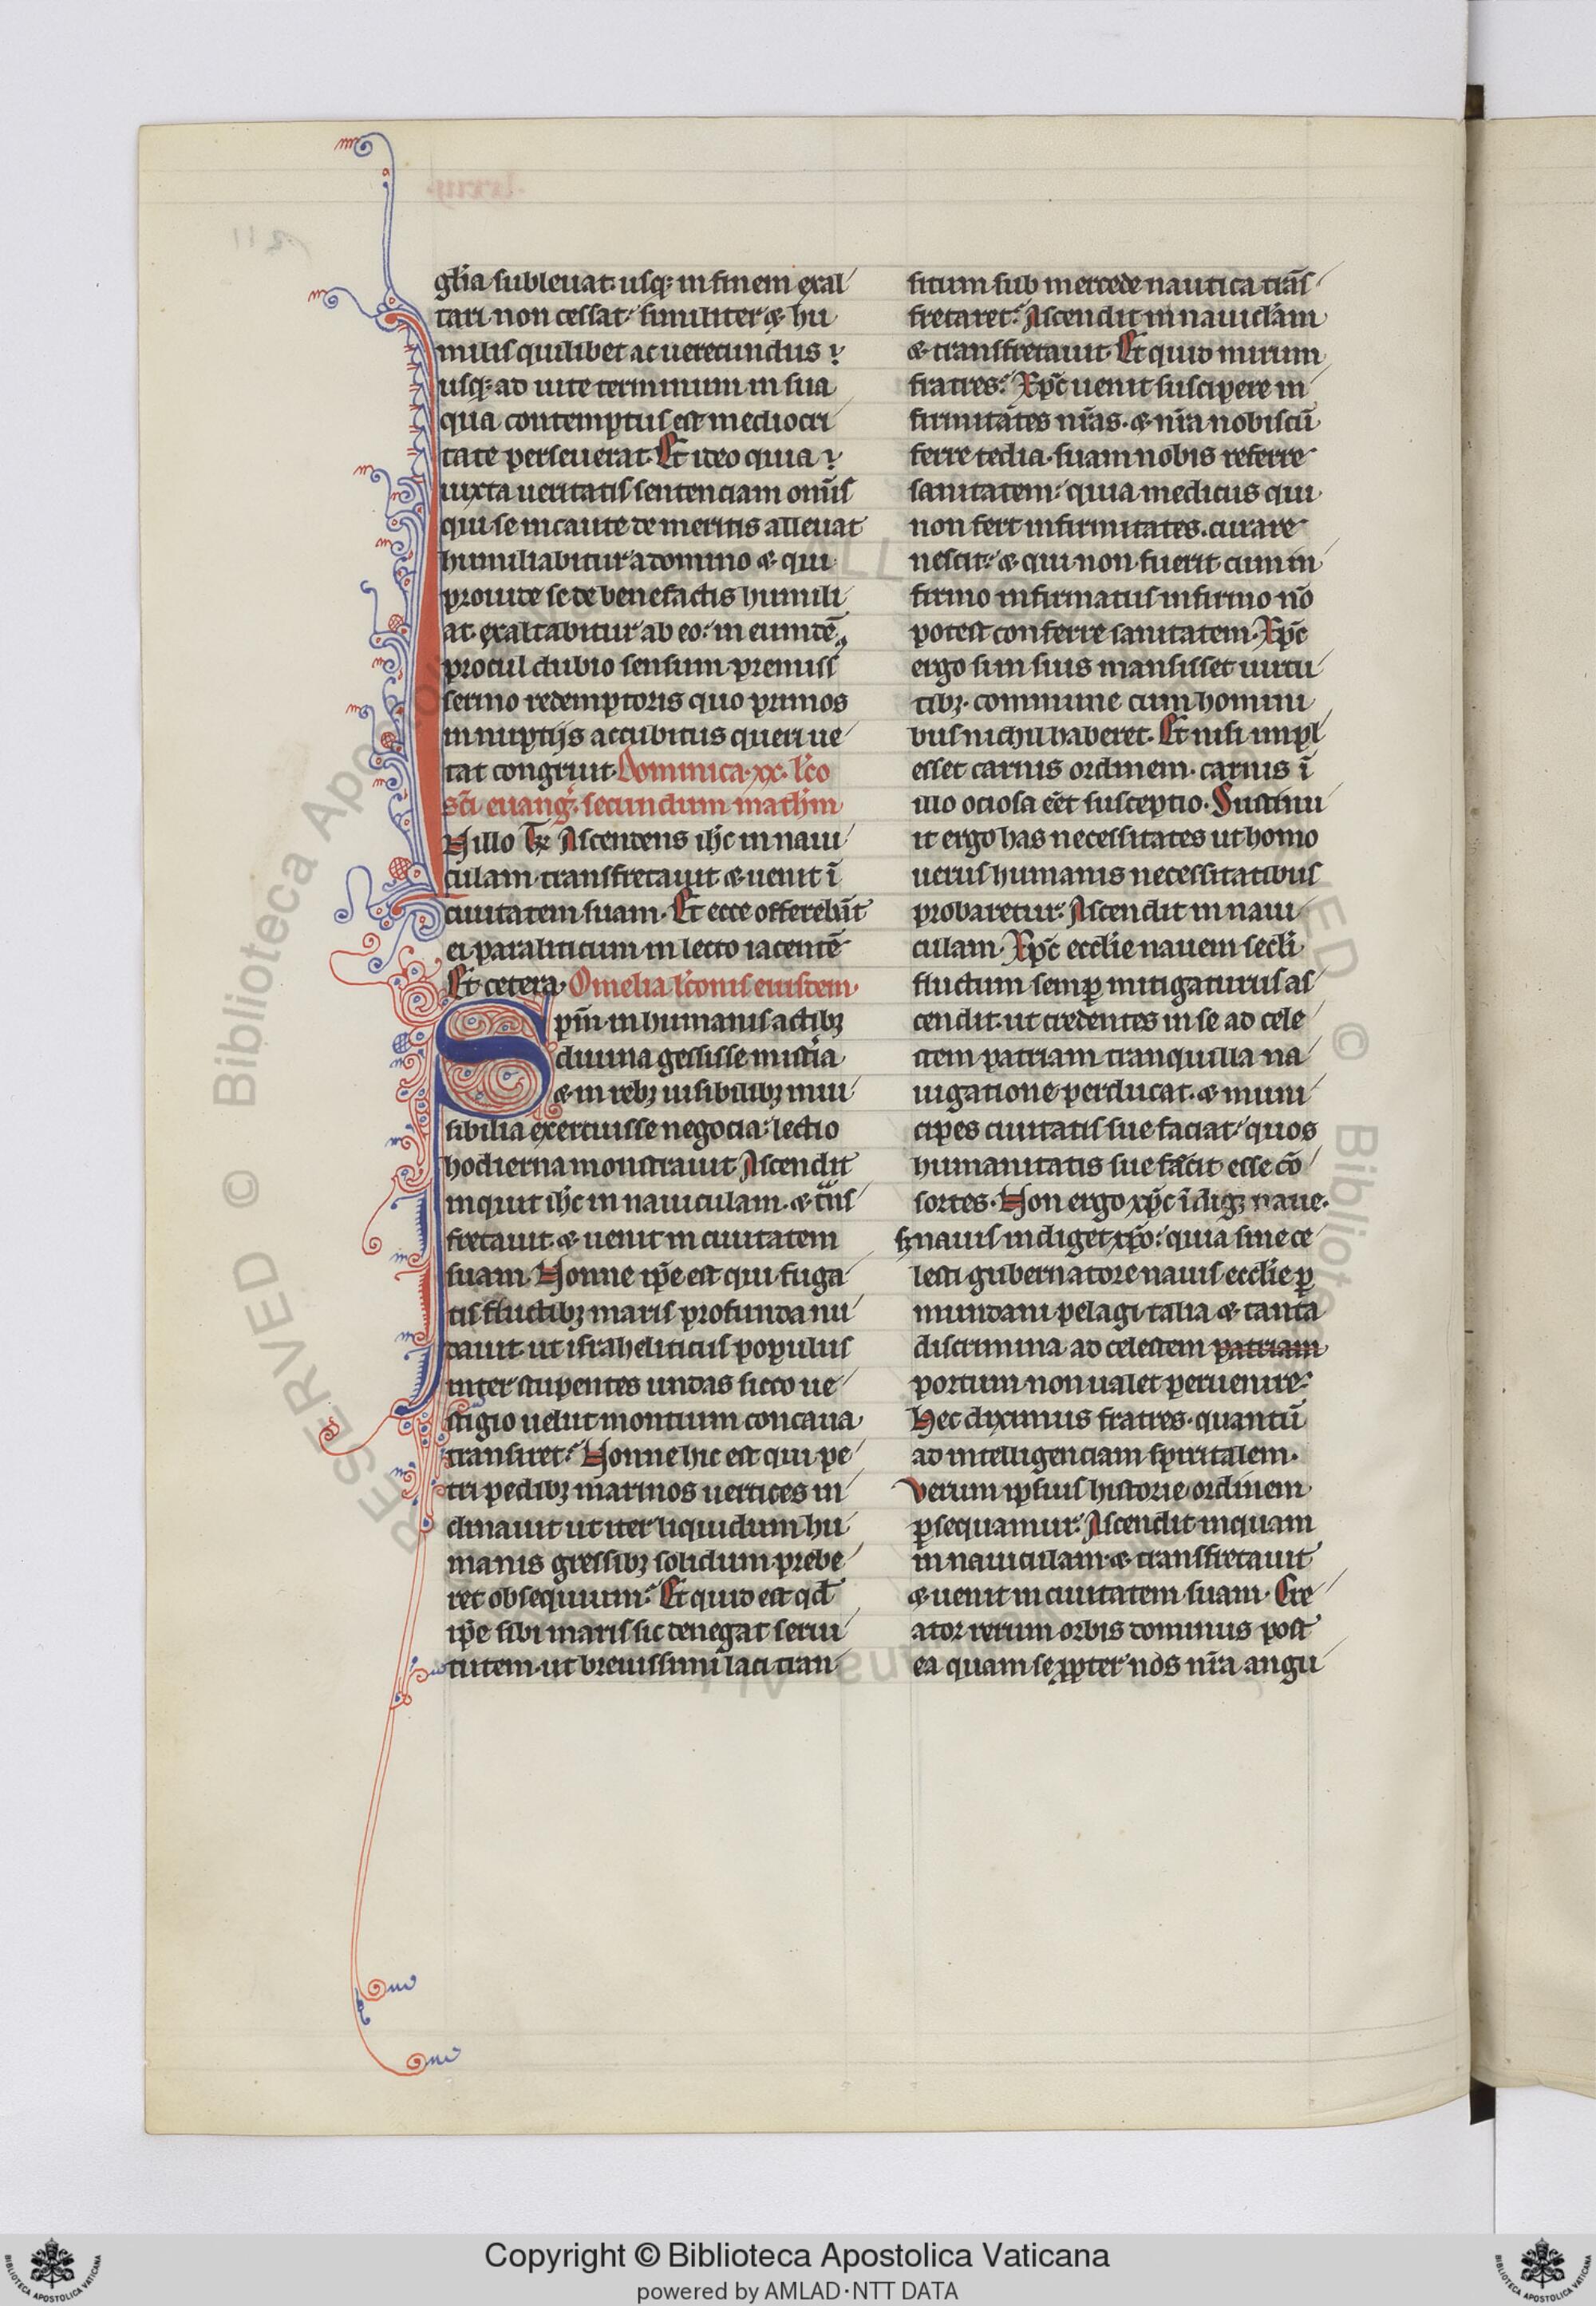 gl̄ia subleuat usq; in finem exal
tari non cessat. similiter & hu
milis quilibet ac uerecundus
usq; ad uite terminum in sua
qua contemptus est mediocri
tate perseuerat. Et ideo quia
iuxta ueritatis sentenciam om̄is
qui se incaute de meritis alleuat
humiliabitur a domino & qui
prouide se de benefactis humili
at. exaltabitur ab eo. in eumdē
procul dubio sensum premiss
sermo redemptoris quo primos
in nuptijs accubitus queri ue
tat congruit. Dominica. xx. lc̄o
sc̄i euang. secundum math̄m
N illo t̄r Ascendens ih̄c in naui
culam. transfretauit & uenit ī
ciuitatem suam. Et ecce offerebūt
ei paraliticum in lecto iacentē
Et cetera. Omelia lc̄onis eiusdem.
Sp̄m in humanis actib;
diuina gessisse mist̄ia
& in reb; uisibilib; inui
sibilia exercuisse negocia. lectio
hodierna monstrauit Ascendit
inquit ih̄c in nauiculam. & t̄ns
fretauit. & uenit in ciuitatem
suam. Nonne ip̄e est qui fuga
tis fluctib; maris profunda nu
dauit. ut israheliticus populus
inter stupentes undas sicco ue
stigio uelut montium concaua
transiret. Nonne hic est qui pe
tri pedib; marinos uertices in
clinauit ut iter liquidum hu
manis gressib; solidum prebe
ret obsequium. Et quid est qd̄
ip̄e sibi maris sic denegat serui
tutem. ut breuissimi laci tran
situm sub mercede nautica trās
fretaret. Ascendit in nauiclam
& transfretauit. Et quid mirum
fratres. Xp̄c uenit suscipere in
firmitates nr̄as. & nr̄a nobiscū
ferre tedia. suam nobis referre
sanitatem. quia medicus qui
non fert infirmitates. curare
nescit. & qui non fuerit cum in
firmo infirmatus infirmo nō
potest conferre sanitatem. Xp̄c
ergo si in suis mansisset uirtu
tib;. commune cum homini
bus nichil haberet. Et nisi impl
esset carnis ordinem. carnis ī
illo ociosa eēt susceptio. Sustinu
it ergo has necessitates ut homo
uerus humanis necessitatibus
probaretur. Ascendit in naui
culam. Xp̄c eccl̄ie nauem secl̄i
fluctum semp̱ mitigaturus as
cendit. ut credentes in se ad cele
stem patriam tranquilla na
uigatione perducat. & muni
cipes ciuitatis sue faciat. quos
humanitatis sue fecit esse cō
sortes. Non ergo xp̄c īdig; naue.
s; nauis indiget xp̄o. quia sine ce
lesti gubernatore nauis eccl̄ie p̱
mundani pelagi talia & tanta
discrimina ad celestem patriam
portum non ualet peruenire.
Hec diximus fratres. quantū
ad intelligenciam spiritalem.
Verum ipsius historie ordinem
p̱sequamur. Ascendit inquam
in nauiculam. & transfretauit
& uenit in ciuitatem suam. Cre
ator rerum orbis dominus post
ea quam se pp̱ter nos nr̄a angu
Copyright © Biblioteca Apostolica Vaticana
powered by AMLAD·NTT DATA